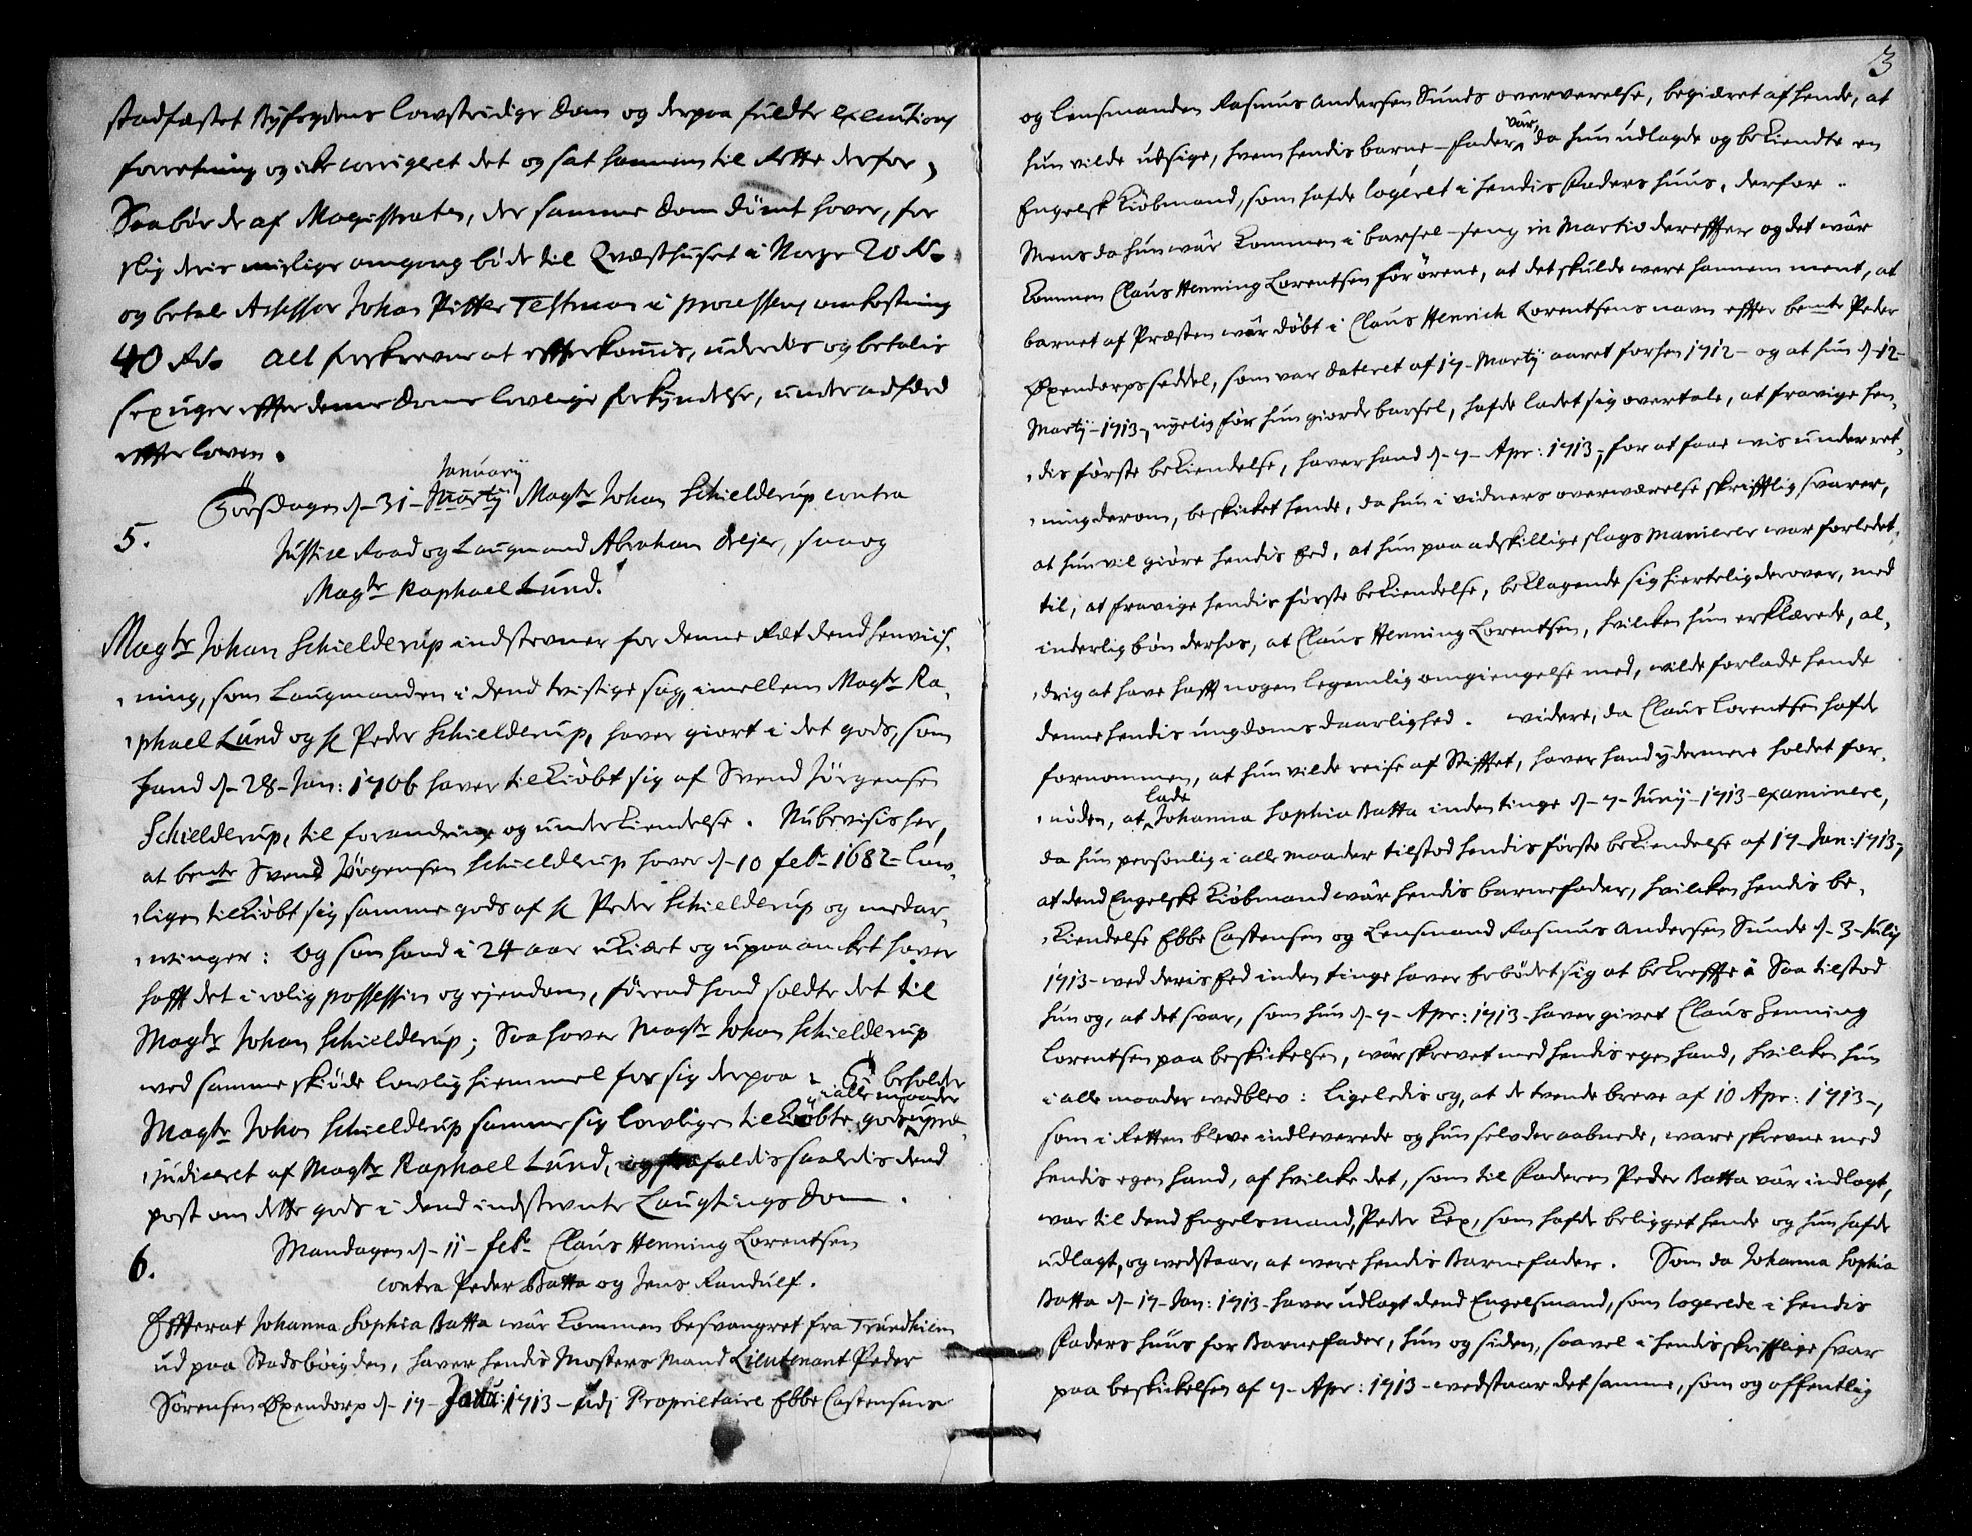 stadfæstet Byfogdens lowstridige dom og derpaa fuldte executions
forretning og icke corrigeret det og sat hannem til Rette derfor,
Saa bör de af Magistraten, der samme dom dömt haver, for
slig deris mislige omgang böde til Qvæsthuset i Norge 20 Rd.
og betale Assessor Johan Pitter Testman i processens omkostning
40 Rd. All forskrevne at efterkommis, uderedis og betalis
sex uger effter denne doms lovlige forkyndelse, under adfærd
effter loven.
Torsdagen d. 31 Januarij Magtr Johan Schielderup contra
5. Justice Raad og Laugmand Abraham Dreyer, saa og
Magtr Raphael Lund.
Magtr Johan Schielderup indstevner for denne Ræt dend henviis-
ning, som Laugmanden i dend tvistige sag, imellem Magtr Ra-
phael Lund og Hr Peder Schielderup, haver giort i det gods, som
hand d. 28 Jan: 1706 haver tilkiöbt sig af Svend Jörgensen
Schielderup, til forandring og underkiendelse. Nu bevisis her,
at bemte Svend Jörgensen Schielderup haver d. 10 febr 1682 low-
ligen tilkiöbt sig samme gods af Hr Peder Schielderup og medar-
winger: Og som hand i 24 aar ukiært og upaaancket haver
hafft det i rolig possession og ejendom, förend hand soldte det til
Magtr Johan Schielderup; Saa haver Magtr Johan Schielderup
wed samme skiöde lowlig hiemmel for sig derpaa: Ti beholder
i alle maader
Magtr Johan Schielderup samme sig lowligen tilkiöbte gods upræ-
judiceret af Magtr Raphael Lund, og falder saaledis dend
post om dette gods i dend indstevnte Laugtings dom.
6. Mandagen d. 11 febr Claus Henning Lorentsen
contra Peder Batta og Jens Randulf.
Effterat Johanna Sophia Batta wâr kommen besvangret fra Trundhiem
ud paa Stadsböigden, haver hendis Mosters Mand Lieutenant Peder
Sörensen Øxendorp d. 17 Jan: 1713 udj Proprietaire Ebbe Castensens
3
og Lensmanden Rasmus Andersen Sunds overværelse, begiæret af hende, at
hun vilde udsige, hvem hendis barne-fader vâr, da hun udlagde og bekiendte en
Engelsk kiöbmand, som hafde logéret i hendis Faders huus, derfor.
Mens da hun wâr kommen i barsel-seng in Martio dereffter og det wâr
kommen Claus Henning Lorentsen for örene, at det skulde were hannem ment, at
barnet af Præsten wâr döbt i Claus Henrich Lorentsens navn effter bemte Peder
Øxendorps seddel, som var dateret af 17 Martij aaret forhen 1712 og at hun d. 12
Martij 1713, nyelig för hun giorde barsel, hafde ladet sig overtale, at fravige hen-
dis förste bekiendelse, haver hand d. 7 Apr: 1713, for at faae wis underret-
ning derom, beskicket hende, da hun i vidners overwærelse skrifftlig svarer,
at hun vil giöre hendis Eed, at hun paa adskillige slags manierer war forledet
til, at fravige hendis förste bekiendelse, beklagende sig hiertelig derover, med
inderlig bön derhos, at Claus Henning Lorentsen, hvilcken hun erklærede, al-
drig at have hafft nogen legemlig omgiengelse med, wilde forlade hende
denne hendis ungdoms daarlighed. widere, da Claus Lorentsen hafde
fornommen, at hun vilde reise af Stifftet, haver hand ydermere holdet for-
nöden, at lade Johanna Sophia Batta inden tinge d. 7 Junij 1713 examinere,
da hun personlig i alle maader tilstod hendis förste bekiendelse af 17 Jan: 1713,
at dend Engelske kiöbmand wâr hendis barnefader, hvilcken hendis be-
kiendelse Ebbe Castensen og Lensmand Rasmus Andersen Sunde d. 3 Julij
1713 wed deris Eed inden tinge haver erbödet sig at bekreffte: Saa tilstod
hun og, at det svar, som hun d. 7 Apr: 1713 haver givet Claus Henning
Lorentsen paa beskickelsen, wâr skrevet med hendis egen hand, hvilcken hun
i alle maader wedblev: Ligeledis og, at de tvende breve af 10 Apr: 1713,
som i Retten bleve indleverede og hun selv der aabnede, ware skrevne med
hendis egen hand, af hvilcke det, som til Faderen Peder Batta vâr indlagt,
war til dend Engelsmand, Peder Kex, som hafde beligget hende og hun hafde
udlagt, og wedstaar, at were hendis Barnefader. Som da Johanna Sophia
Batta d. 17 Jan: 1713 haver udlagt dend Engelsmand, som logerede i hendis
Faders huus for Barnefader, hun og siden, saavel i hendis skrifftlige svar
paa beskickelsen af 7 Apr: 1713 wedstaar det samme, som og offentlig